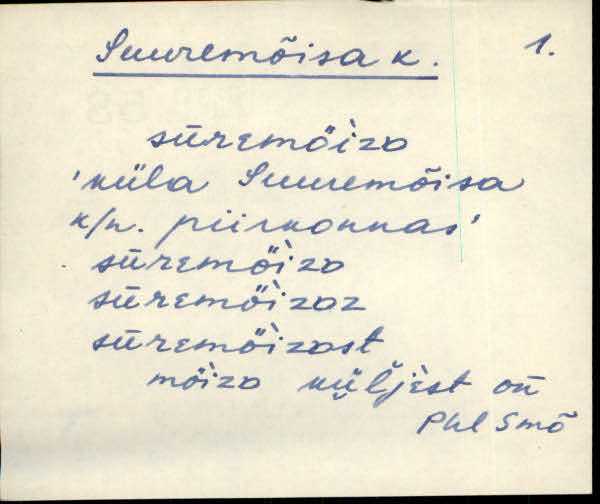 Suuremõisa k. 1.
sūremȫìzɑ
'küla Suuremõisa
k/n. piirkonnas'
sūremȫìzɑ
sūremȫìzɑz
sūremȫìzɑst
mȯ̈ìzɑ küĺjèst on̄
Phl Smõ